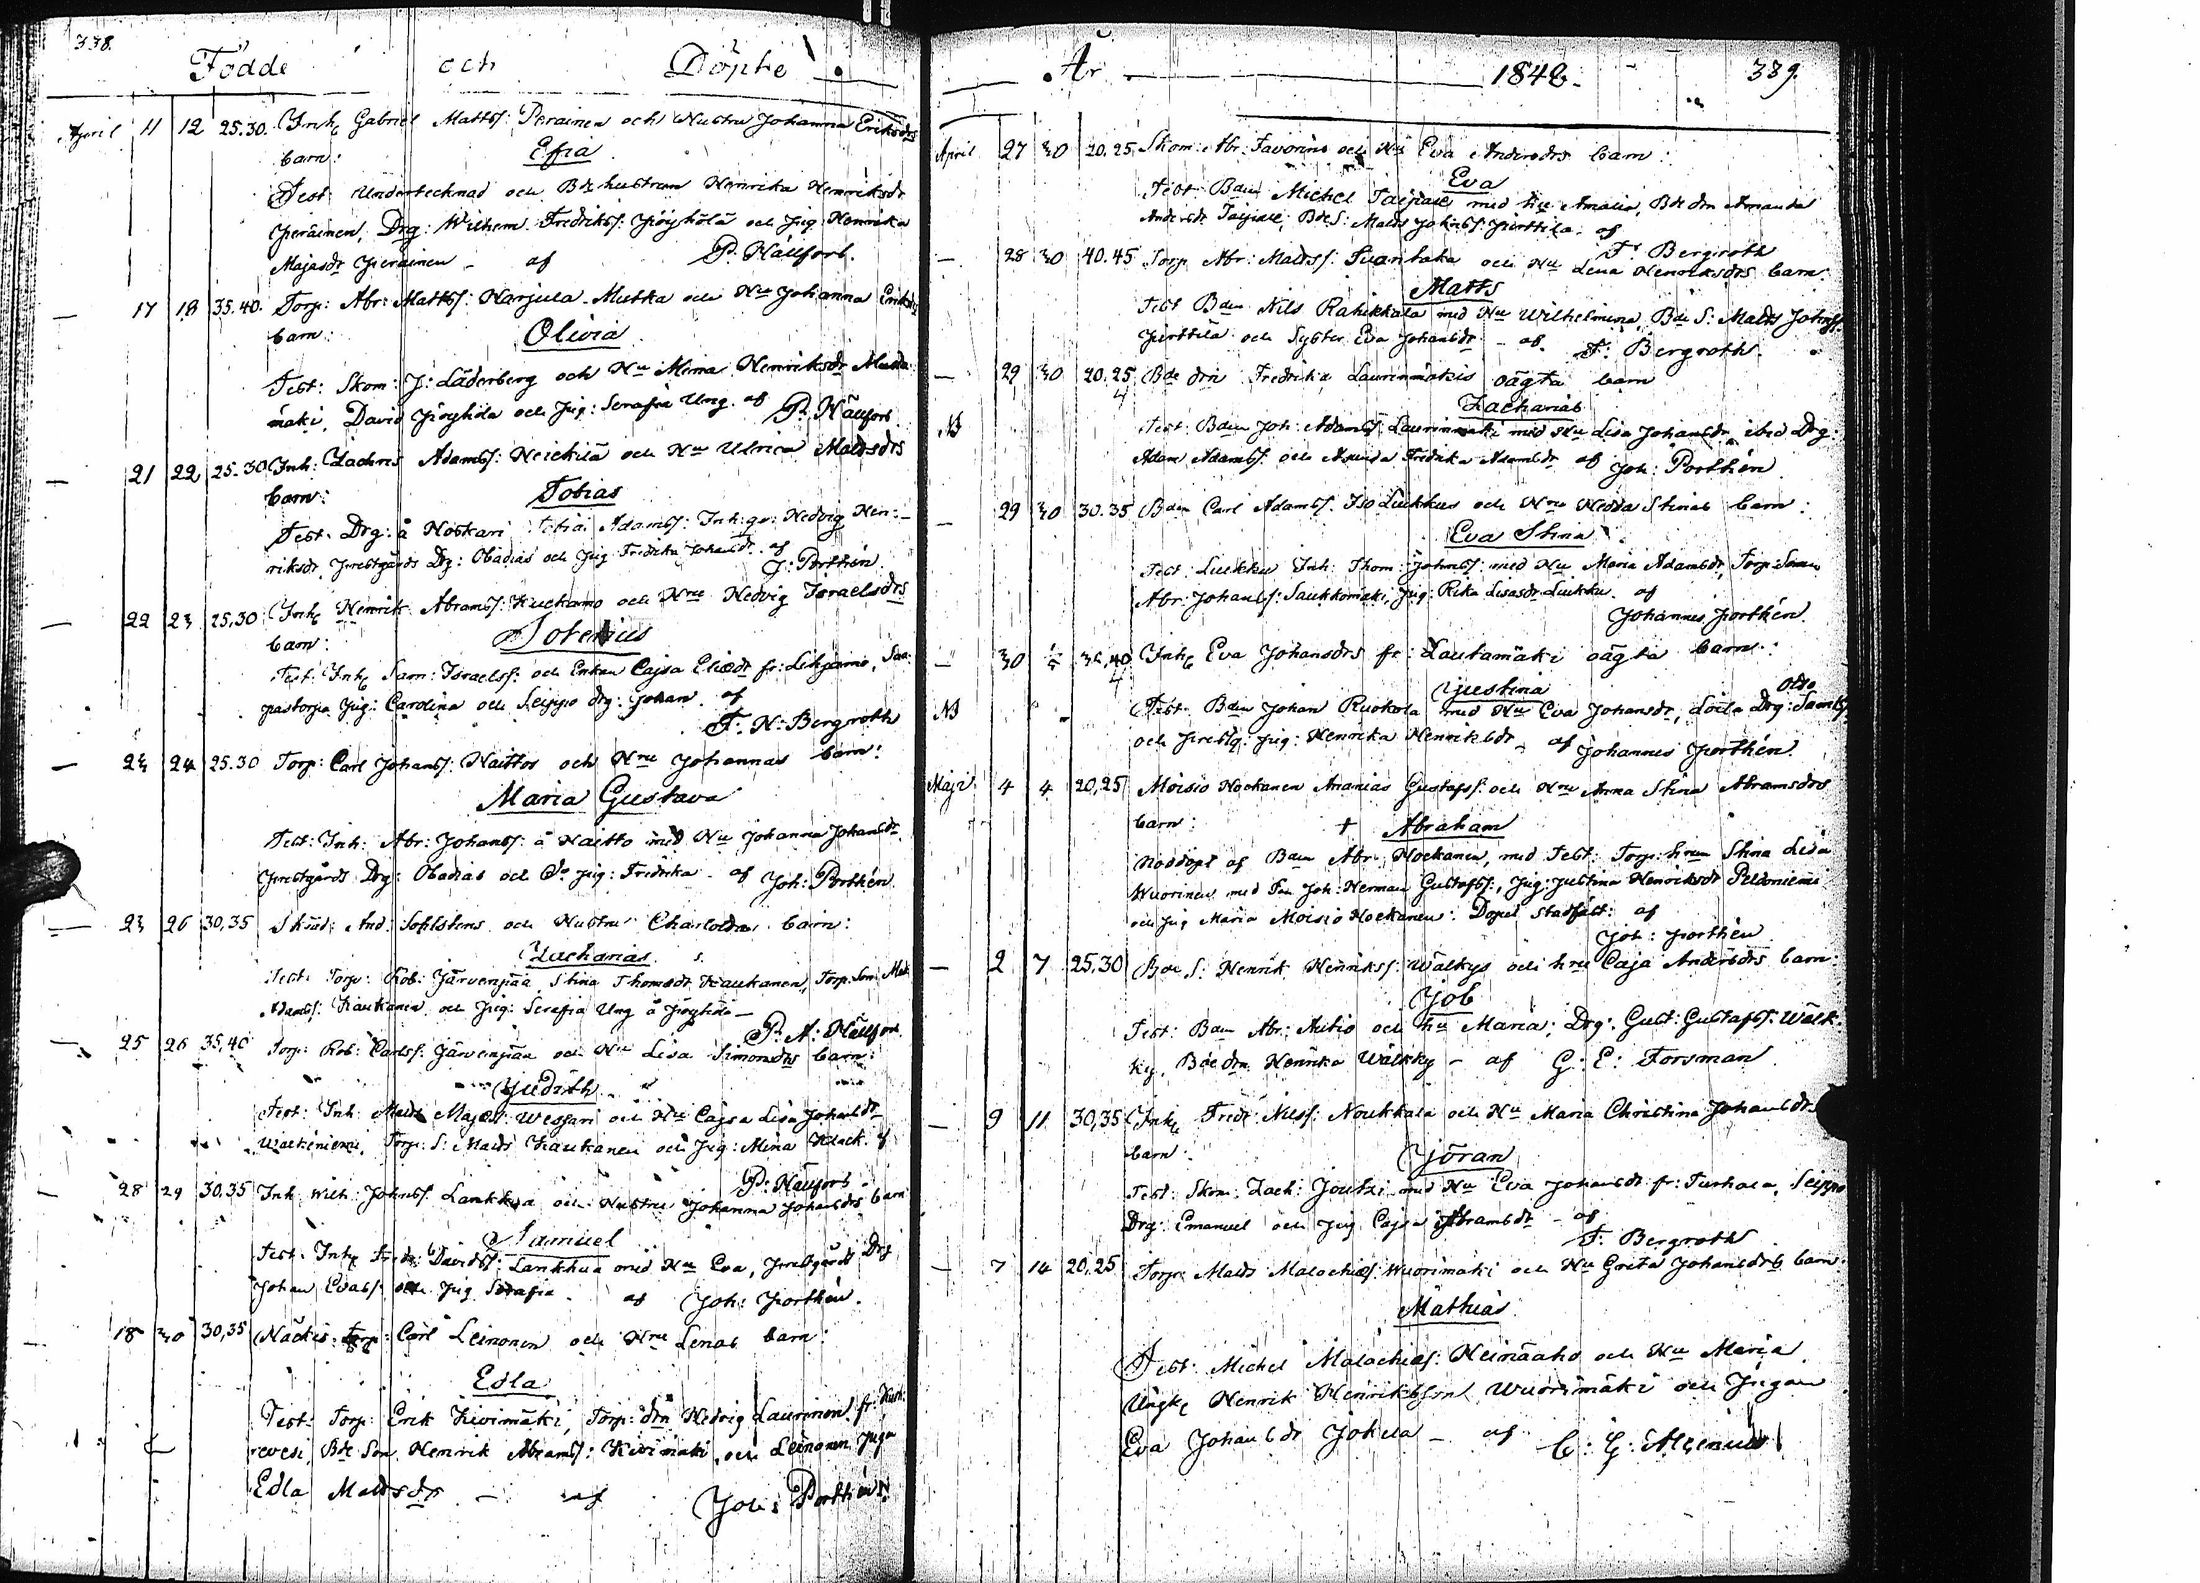 338.
Födde och Döpte
April 11 12 25.30. Inh. Gabriel Mattss: Perainen och Hustru Johanna Eriksdrs
barn:
Efia
Test: Undertecknad och Bde hustrun Henrika Henriksdr
Peräinen, Drg: Wilhem Fredrikss: Pöyhölä och Pig: Henrika
Majasdr Perainen – af P. Hällfors.
– 17 18 35.40. Torp: Abr: Mattss: Harjula Mutka och Hu Johanna Eriksdrs
barn:
Olivia
Test: Skom: J: Läderberg och Hu Mima Henriksdr
mäki, David Pöyhöla och Pig: Serafia Ung. af P. Hällfors.
– 21 22 25.30 Inh: Zachris Adamss: Heickilä och Hu Ulrica Mattsdrs
barn:
Tobias
Test. Drg: å Hoskari Adamss: Inh: qv: Hedvig Hen:
riksdr, Prestgårds Drg: Obadias och Pig Fredrika Johansdr. af
J: Porthén.
– 22 23 25,30 Inh. Henrik Abramss: Kuckamo och Hru Hedvig Israelsdrs
barn:
Test: Inh. Sam: Israelss: och Enkan Cajsa Eliedr fr: Lehjamo,
pastorpa Pig: Carolina och Seippo drg: Johan. af
F. H: Bergroth
– 23 24 25.30 Torp: Carl Johanss: Haittos och Hru Johannas barn:
Maria Gustava
Test: Inh: Abr: Johanss: å Haitto med Hu Johanna Johansdr
Prestgårds Drg: Obadias och Do Pig: Fredrika – af Joh: Porthén.
– 23 26 30,35 And: Sohlstens och Hustru Charlottas barn:
Zacharias
Test: Torp: Rob: Järvenpää, Stina Thomasdr Kaukanen, Torp: Son
Adamss: Kaukanen och Pig: Serafia Ung å Pöyhölä –
P. A: Hällfors
– 25 26 35,40 Torp: Rob: Carlss: Järvenpää och Hu Lisa Simonsdrs barn:
Judith
Test: Inh: Matts Majass: Wessari och Hu Cajsa Lisa Johansdr
Walkeniemi, Torp: S: Matts Kaukanen och Pig: Mina Klack. af
P. Hällfors
– 28 29 30.35 Inh Wilh: Johnss: Lankkua och Hustru Johanna Johansdrs barn
Samuel
Test: Inh. Davidss: Lankkua med Hu Eva, Prestgårds Drg
Johan Evass: och Pig Serafia. af Joh: Porthén.
– 18 30 30,35 Näckis Torp: Carl Leinonen och Hru Lenas barn:
Edla
Test: Torp: Erik Kivimäki, Torp: drn Hedvig Laurinen
Bde Son Henrik Abramss: Kivimäki, och Leinonen Piga
Edla Mattsdr – af Joh: Porthén
År 1848. 339.
April 27 30 20.25 Skom: Abr: Favorins och Hu Eva Andersdrs barn:
Eva
Test: Bden Michel Taipale med hu Amalia, Bde drn Amanda
Andersdr Taipale, Bde S: Matts Johnss: Pirttilä. af
F. Bergroth
– 28 30 40.45 Torp Abr: Mattss: Puantaka och Hu Lena Henriksdrs barn:
Matts
Test Bden Nils Rahikkala med Hu Wilhelmina, Bde S: Matts Johnss:
Pirttilä och Syster Eva Johansdr – af. F. Bergroth.
– 29 30 20.25 Bde drn Fredrika Laurinmäkis oägta barn
4
Zacharias
NB Test: Bden Joh: Adamss: Laurinmäki med Hu Lisa Johansdr ibid Drg:
Adam Adamss: och Fredrika Adamsdr af Joh: Porthén
– 29 30 30.35 Bden Carl Adamss: Iso Luckkus och Hru Hedda Stinas barn:
Eva Stina
Test: Luckku Inh: Thom: Johnss: med Hu Maria Adamsdr, Torp: Sonen
Abr: Johanss: Saukkomäki, Pig: Rika Lisasdr Luckku. af
Johannes Porthén.
– 30 Inh. Eva Johansdrs fr: Lautamäki oägta barn:
4
Justina
NB Test: Bden Johan Ruokola med Hu Eva Johansdr, Drg: Samls
och Prestg: Pig: Henrika Henriksdr – af Johannes Porthén.
Maji 4 4 20,25 Moisio Hockanen Ananias Gustafss: och Hru Anna Stina Abramsdrs
barn:
+ Abraham
Nöddöpt af Bden Abr: Hockanen, med Test: Torp: hrun Stina Lisa
Wuorinen med Joh: Herman Gustafss:, Pig: Justina Henriksdr Peldoniemi
och Pig Maria Moisio Hockanen: Dopet stadfäst: af
Joh: Porthén
– 2 7 25,30 Bde S: Henrik Henrikss: Wälkys och hru Caja Andersdrs barn:
Job
Test: Bden Abr: Autio och hu Maria; Drg: Gust: Gustafss: Wälk-
ky, Bde drn Henrika Wälkky – af G: E: Forsman
– 9 11 30,35 Inh. Fredr: Nilss: Noukkala och Hu Maria Christina Johansdrs
barn:
Jöran
Test: Skom: Zach: Joutzi med Hu Eva Johansdr fr: Turhala, Seippo
Drg: Emanuel och Pig Cajsa Abramsdr – af
F. Bergroth
– 7 14 20,25 Torp: Matts Malachiass: Wuorimäki och Hu Greta Johansdrs barn:
Mathias
Test: Michel Malachiass: Heinäaho och Hu Maria
Ungk. Henrik Henriksson Wuorimäki och Pigan
Eva Johansdr Jokela – af C: G: Alcenius